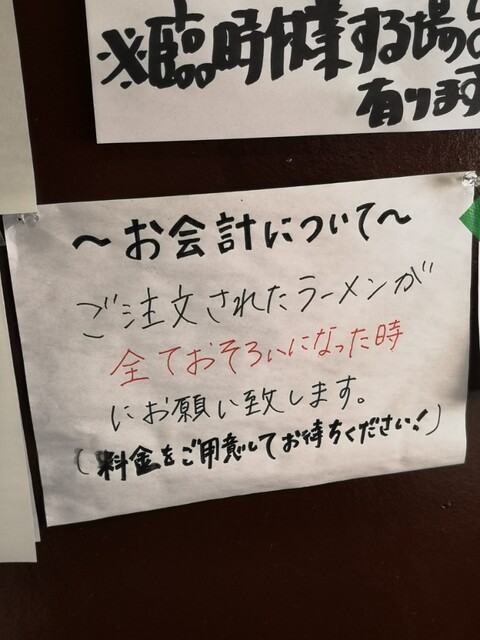 ※臨時休業する場
有ります
～お会計について～
ご注文されたラーメンが
全ておそろいになった時
にお願い致します。
(料金をご用意してお待ちください!)